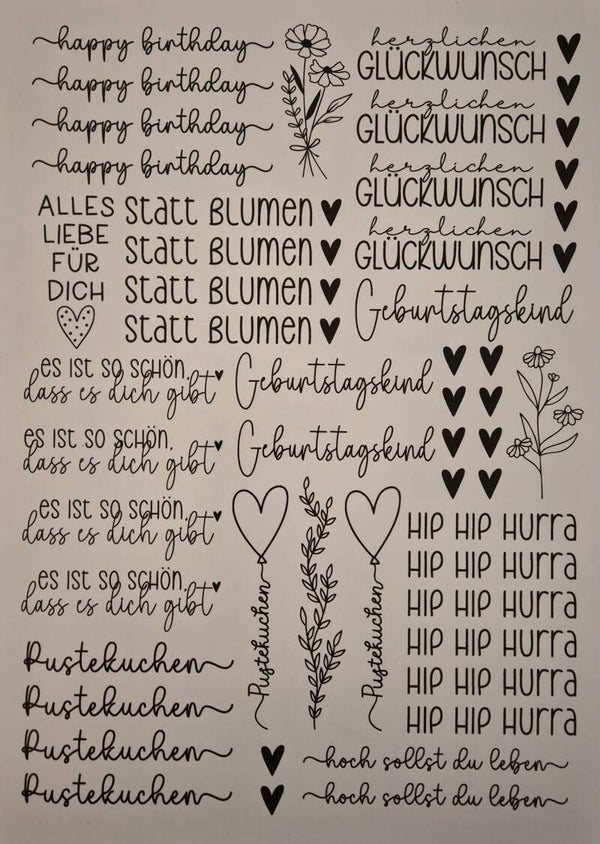 happy birthday
happy birthday
happy birthday
happy birthday
herzlichen
GLÜCKWUNSCH
herzlichen
GLÜCKWUNSCH
herzlichen
GLÜCKWUNSCH
herzlichen
GLÜCKWUNSCH
ALLES
LIEBE
FÜR
DICH
statt BLUMEN
statt BLUMEN
statt BLUMEN
statt BLUMEN
Geburtstagskind
es ist so schön,
dass es dich gibt
Geburtstagskind
es ist so schön,
dass es dich gibt
Geburtstagskind
es ist so schön,
dass es dich gibt
es ist so schön,
dass es dich gibt
Pustekuchen
Pustekuchen
HIP HIP HURRA
HIP HIP HURRA
HIP HIP HURRA
HIP HIP HURRA
HIP HIP HURRA
HIP HIP HURRA
Pustekuchen
Pustekuchen
Pustekuchen
Pustekuchen
hoch sollst du leben
hoch sollst du leben